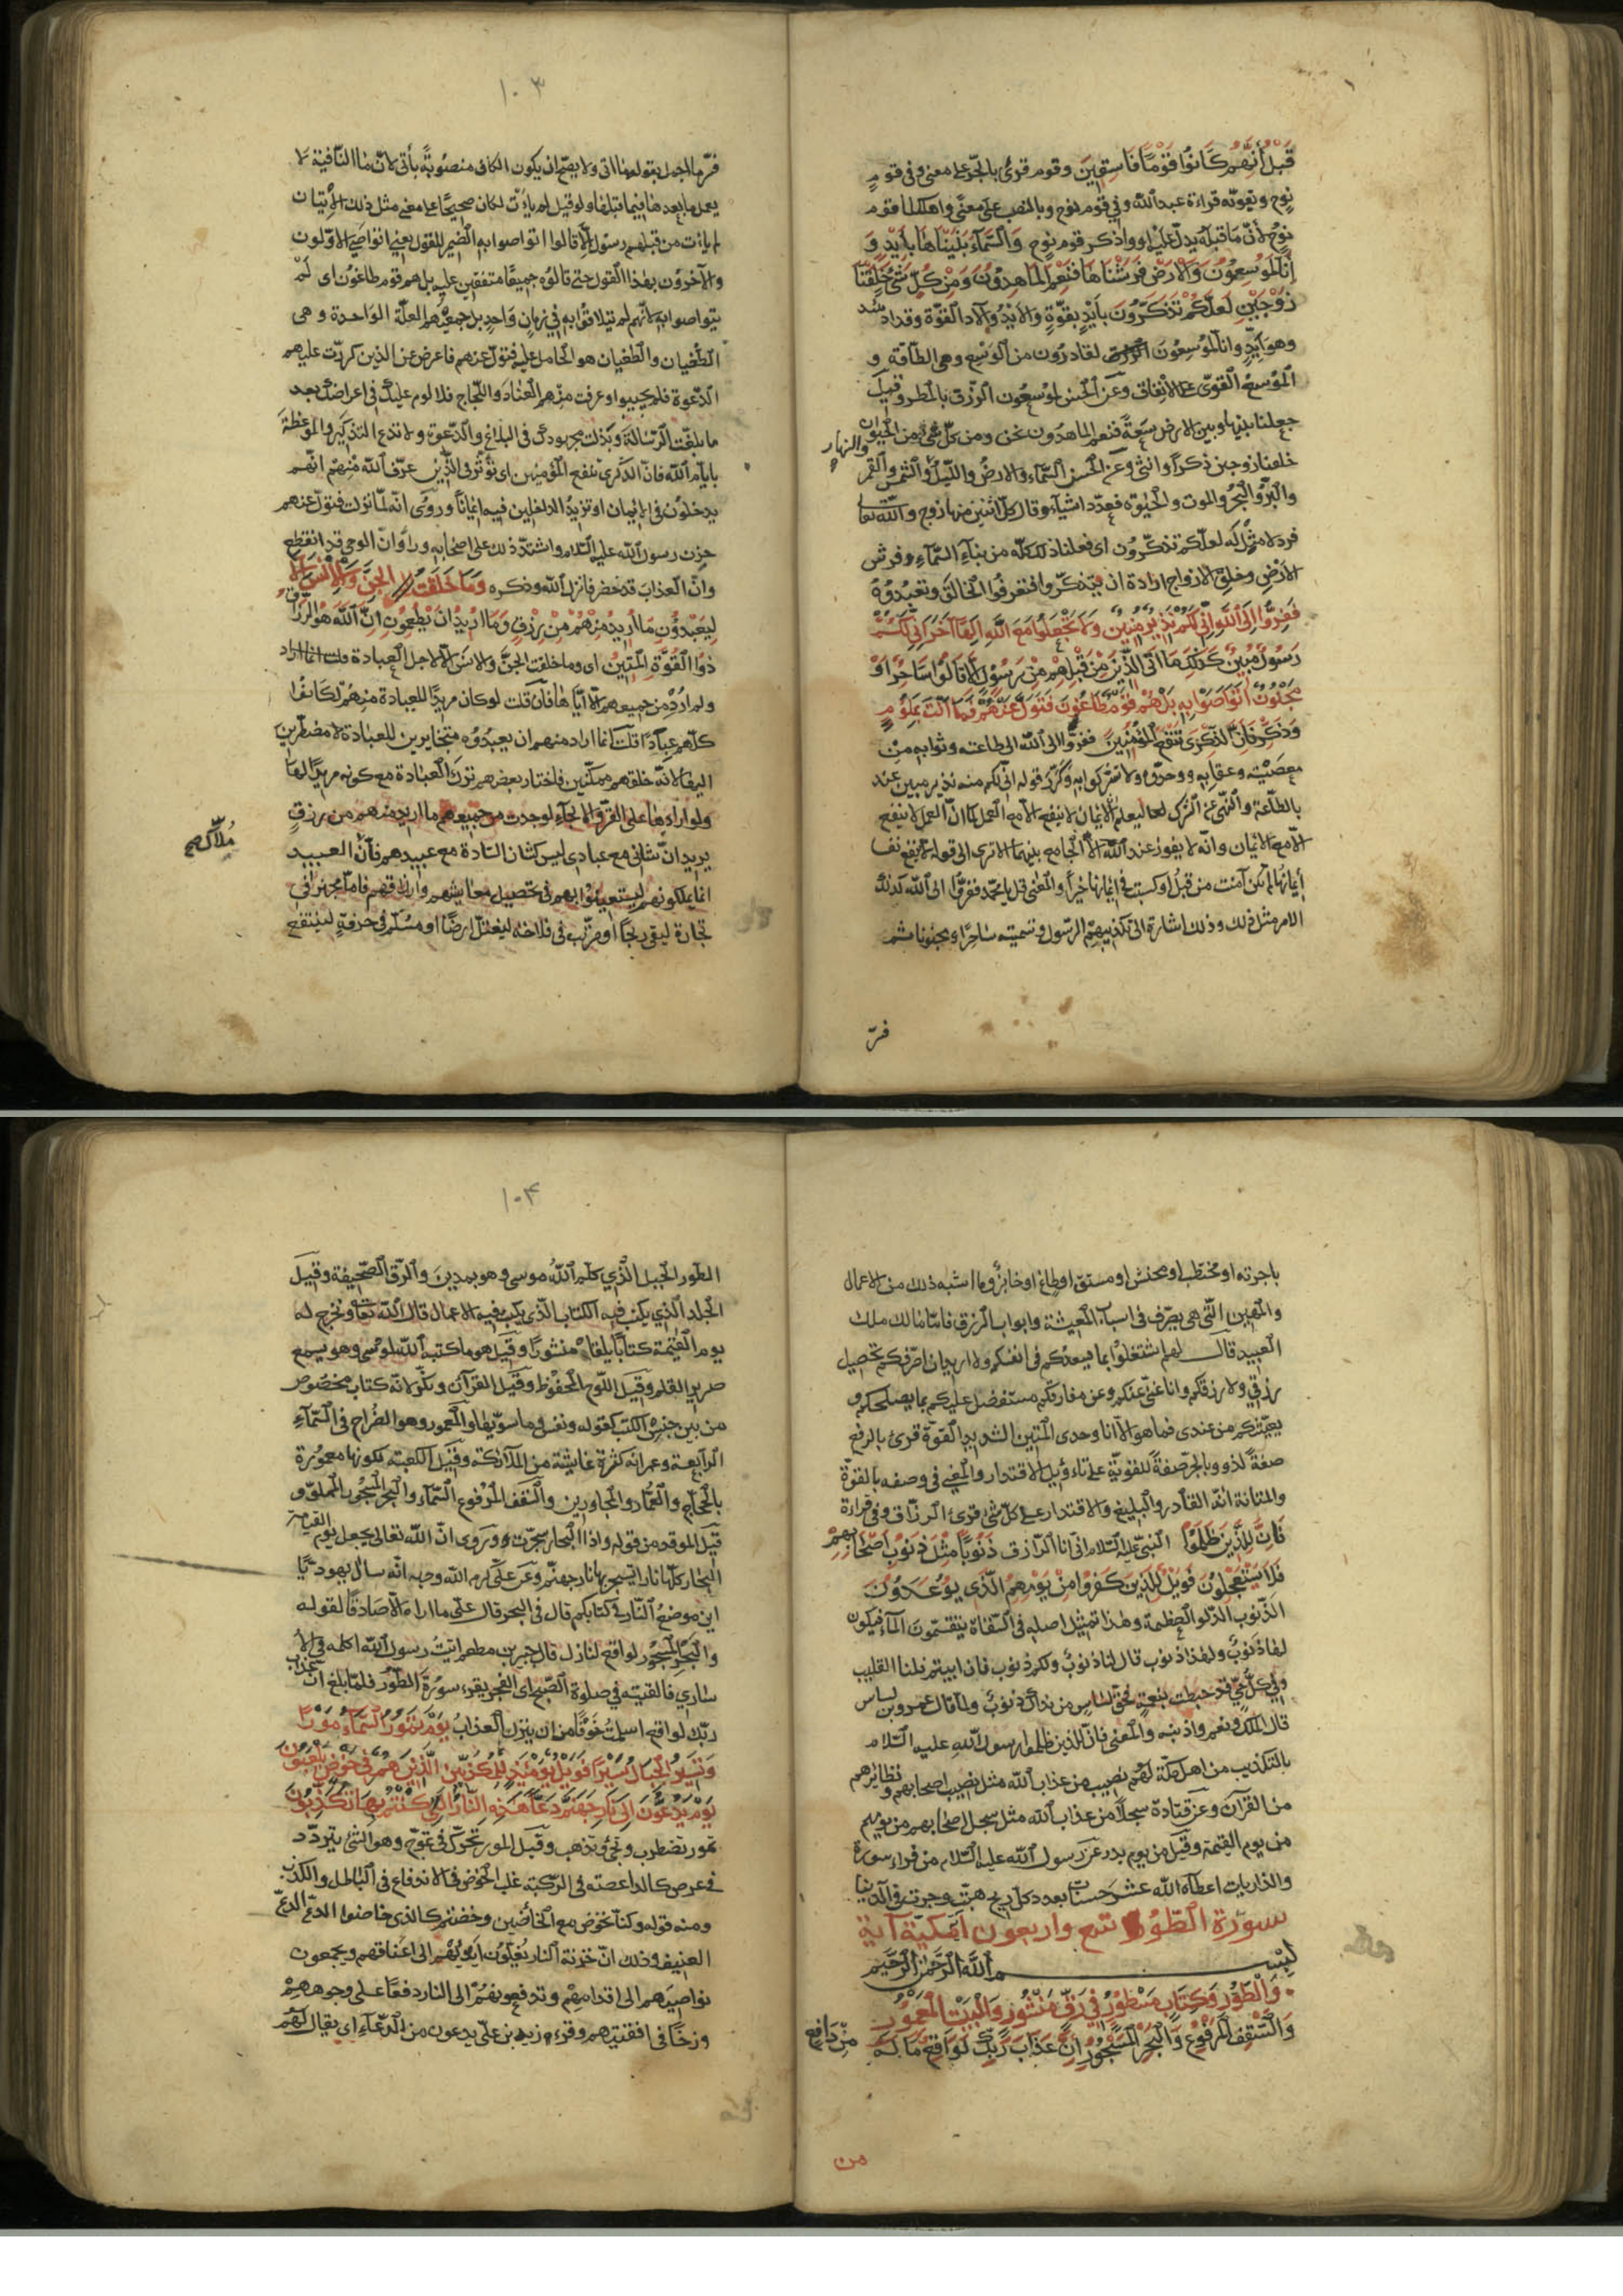 قَبْلُ أَنَّهُمْ كَانُوا قَوْمًا فَاسِقِينَ وقوم قرئ بالجرّ على معنى وفى قوم
نوح وتقويه قراءة عبد الله وفي قوم نوح وبالنصب على معنى واهلكنا قوم
نوح لأنّ ما قبله يدل عليه او واذكر قوم نوح وَالسَّمَاءَ بَنَيْنَاهَا بِأَيْدٍ وَ
إِنَّا لَمُوسِعُونَ وَالأَرْضَ فَرَشْنَاهَا فَنِعْمَ الْمَاهِدُونَ وَمِنْ كُلِّ شَيْءٍ خَلَقْنَا
زَوْجَيْنِ لَعَلَّكُمْ تَذَكَّرُونَ بأيد بقوّة والايد والآد القوّة وقد اد يئد
وهو أيّد وانا لموسعون لقادرون من الوسع وهى الطاقة و
الموسع القوىّ على الانفاق وعن الحسن لموسعون الرزق بالمطر وقيل
جعلنا بينها وبين الارض سعة فنعم الماهدون نحن ومن كلّ شئ من الحيوان
خلقنا زوجين ذكرا وانثى وعن الحسن السّماء والارض والليل والشمس والقمر
والنهار
والبرّ والبحر والموت والحيوة فعدّد اشياء وقال كل اثنين منها زوج والله تعالى
فرد لا مثل له لعلّكم تذكّرون اى فعلنا ذلك كله من بناء السّماء وفرش
الارض وخلق الازواج ارادة ان تتذكّروا فتعرفوا الخالق وتعبدوه
فَفِرُّوا إِلَى اللَّهِ إِنِّي لَكُمْ مِنْهُ نَذِيرٌ مُبِينٌ وَلَا تَجْعَلُوا مَعَ اللَّهِ إِلَهًا آخَرَ إِنِّي لَكُمْ
رَسُولٌ مُبِينٌ كَذَلِكَ مَا أَتَى الَّذِينَ مِنْ قَبْلِهِمْ مِنْ رَسُولٍ إِلَّا قَالُوا سَاحِرٌ أَوْ
مَجْنُونٌ أَتَوَاصَوْا بِهِ بَلْ هُمْ قَوْمٌ طَاغُونَ فَتَوَلَّ عَنْهُمْ فَمَا أَنْتَ بِمَلُومٍ
وَذَكِّرْ فَإِنَّ الذِّكْرَى تَنْفَعُ الْمُؤْمِنِينَ ففرّوا الى الله الى طاعته وثوابه من
معصيته وعقابه ووحدوه ولا تشركوا به وكرّر قوله انّى لكم منه نذير مبين عند
بالطّاعة والنهى عن الشرك ليعلم ان الايمان لا ينفع الا مع العمل كما انّ العمل لا ينفع
الا مع الايمان وانه لا يفوز عند الله الا الجامع بينهما الا ترى الى قوله لا ينفع نفسا
إيمانها لم تكن آمنت من قبل او كسبت فى ايمانها خيرا والمعنى قل يا محمّد ففرّوا الى الله كذلك
الامر مثل ذلك وذلك اشارة الى تكذيبهم الرّسول وتسميته ساحرا ومجنونا ثم
فسّر
١٠٣
فسّر ما اجمل بقوله ما اتى ولا يصحّ ان يكون الكاف منصوبة بأتى لانّ ما النافية لا
يعمل ما بعدها فيما قبلها ولو قيل لم يأت لكان صحيحا على معنى مثل ذلك الاتيان
لم يأت من قبلهم رسول الا قالوا اتواصوا به الضمير للقول يعنى اتواصى الاوّلون
والآخرون بهذا القول حتى قالوه جميعا متفقين عليه بل هم قوم طاغون اى لم
يتواصوا به لانّهم لم يتلاقوا به في زمان واحد بل جمعتهم العلّة الواحدة وهى
الطّغيان والطغيان هو الحامل عليه فتولّ عنهم فاعرض عن الذين كررت عليهم
الدّعوة فلم يجيبوا وعرفت منهم العناد واللّجاج فلا لوم عليك فى اعراضك بعد
ما بلّغت الرّسالة وبذلت مجهودك فى البلاغ والدّعوة ولا تدع التذكير والموعظة
بايّام الله فانّ الذكرى تنفع المؤمنين اى تؤثر فى الّذين عرف الله منهم انّهم
يدخلون فى الايمان او تزيد الداخلين فيه ايمانا وروى انّه لمّا نزلت فتولّ عنهم
حزن رسول الله عليه السّلام واشتدّ ذلك على اصحابه ورأوا انّ الوحى قد انقطع
وانّ العذاب قد حضر فانزل الله وذكر وَمَا خَلَقْتُ الْجِنَّ وَالْإِنْسَ إِلَّا
لِيَعْبُدُونِ مَا أُرِيدُ مِنْهُمْ مِنْ رِزْقٍ وَمَا أُرِيدُ أَنْ يُطْعِمُونِ إِنَّ اللَّهَ هُوَ الرَّزَّاقُ
ذُو الْقُوَّةِ الْمَتِينُ اى وما خلقت الجنّ والانس الا لاجل العبادة
ولم أرد من جميعهم الا ايّاها فان قلت لو كان مريدا للعبادة منهم لكانوا
كلّهم عبادا قلت انما اراد منهم ان يعبدوه متخايرين للعبادة لا مضطرين
اليها لانّه خلقهم ممكّنين فاختار بعضهم ترك العبادة مع كونه مريدا لها
ولو ارادها على القسر والالجاء لوجدت من جميعهم ما اريد منهم من رزق
يريد انّ شانى مع عبادى ليس كشان السّادة مع عبيدهم فانّ
العبيد
انما يملكونهم ليستعينوا بهم فى تحصيل معايشهم وارزاقهم فاما مجهز فى
تجارة ليفى ربحا او مرتّب فى فلاحة ليغتلّ ارضا او مسلم فى حرفة لينتفع
باجرته او محتطب او محتش او مستق او طاغ او خابز وما اشبه ذلك من الاعمال
والمهن الّتى هى تصرّف فى اسباب المعيشة وابواب الرزق فامّا مالك ملك
العبيد قال لهم اشتغلوا بما يسعدكم فى انفسكم ولا اريد ان اصرّفكم تحصيل
رزقي ولا رزقكم وانا غنى عنكم وعن مرافقكم متفضل عليكم بما يصلحكم و
يعيّشكم من عندى فما هو الا انا وحدى المتين الشديد القوّة قرئ بالرفع
صفة لذو وبالجرّ صفة للقوّة على تاويل الاقتدار والمعنى فى وصفه بالقوّة
والمتانة انّه القادر والبليغ والاقتدار على كلّ شئ قرئ الرزّاق وفى قراءة
النبىّ عليه السّلام انّى انا الرّازق فَإِنَّ لِلَّذِينَ ظَلَمُوا ذَنُوبًا مِثْلَ ذَنُوبِ أَصْحَابِهِمْ
فَلَا يَسْتَعْجِلُونِ فَوَيْلٌ لِلَّذِينَ كَفَرُوا مِنْ يَوْمِهِمُ الَّذِي يُوعَدُونَ
الذّنوب الدّلو العظيمة وهذا تمثيل اصله فى السّقاة يتقسّمون الماء فيكون
لهذا ذنوب ولهذا ذنوب قال لنا ذنوب ولكم ذنوب فان ابيتم فلنا القليب
وفي كلّ حىّ قد خبطت بنعمة فحق لشاس من نداك ذنوب ولمّا قال عمرو بن شاس
قال الملك نعم واذنبة والمعنى فانّ الذين ظلموا رسول الله عليه السّلام
بالتكذيب من اهل مكة لهم نصيب من عذاب الله مثل نصيب اصحابهم ونظائرهم
من القرآن وعن قتادة سجلا من عذاب الله مثل سجل اصحابهم من يومهم
من يوم القيمة وقيل من يوم بدر عن رسول الله عليه السّلام من قراء سورة
والذاريات اعطاه الله عشر حسنات بعدد كلّ ريح هبّت وجرت فى الدنيا
سورة الطّور تسع واربعون آية مكية
بسم الله الرّحمن الرّحيم
وَالطُّورِ وَكِتَابٍ مَسْطُورٍ فِي رَقٍّ مَنْشُورٍ وَالْبَيْتِ الْمَعْمُورِ
وَالسَّقْفِ الْمَرْفُوعِ وَالْبَحْرِ الْمَسْجُورِ إِنَّ عَذَابَ رَبِّكَ لَوَاقِعٌ مَا لَهُ مِنْ دَافِعٍ
١٠٤
الطّور الجبل الّذي كلّم الله موسى وهو بمدين والرّق الصّحيفة وقيل
الجلد الذي يكتب فيه الكتاب الّذى يكتب فيه الاعمال قال الله تعالى ونخرج له
يوم القيمة كتابا يلقاه منشورا وقيل هو ما كتبه الله لموسى وهو يسمع
صرير القلم وقيل اللّوح المحفوظ وقيل القرآن ونكّر لانّه كتاب مخصوص
من بين جنس الكتب كقوله ونفس وما سوّيها والبيت المعمور وهو الضّراح فى السّماء
الرابعة وعمرانه كثرة غاشيته من الملائكة وقيل الكعبة لكونها معمورة
بالحجّاج والعمّار والمجاورين والسّقف المرفوع السّماء والبحر المسجور المملوّ و
قيل الموقد من قوله واذا البحار سجّرت وروى انّ الله تعالى يجعل يوم القيامة
البحار كلّها نارا يسجر بها نار جهنّم وعن علىّ كرم الله وجهه انّه سال يهوديّا
اين موضع النّار فى كتابكم قال فى البحر قال علىّ ما اراه الا صادقا لقوله
والبحر المسجور لواقع لنازل قال جبير بن مطعم اتيت رسول الله اكلمه فى الا
سارى فالقيته في صلوة الصّبح اى الفجر يقرء سورة الطّور فلمّا بلغ انّ عذاب
ربّك لواقع اسلمت خوفا من ان ينزل العذاب يَوْمَ تَمُورُ السَّمَاءُ مَوْرًا
وَتَسِيرُ الْجِبَالُ سَيْرًا فَوَيْلٌ يَوْمَئِذٍ لِلْمُكَذِّبِينَ الَّذِينَ هُمْ فِي خَوْضٍ يَلْعَبُونَ
يَوْمَ يُدَعُّونَ إِلَى نَارِ جَهَنَّمَ دَعًّا هَذِهِ النَّارُ الَّتِي كُنْتُمْ بِهَا تُكَذِّبُونَ
تمور تضطرب وتجئ وتذهب وقيل المور تحرّك فى تموّج وهو الشئ يتردّد
فى عرض كالداغصة فى الرّكبة غلب الخوض فى الاندفاع فى الباطل والكذب
ومنه قوله وكنّا نخوض مع الخائضين وخضتم كالذى خاضوا الدعّ الدّفع
العنيف وذلك انّ خزنة النّار يغلّون ايديهم الى اعناقهم ويجمعون
نواصيهم الى اقدامهم وتدفعونهم الى النار دفعا على وجوههم
وزخّا فى اقفيتهم وقرء زيد بن علىّ يدعون من الدّعاء اى يقال لهم